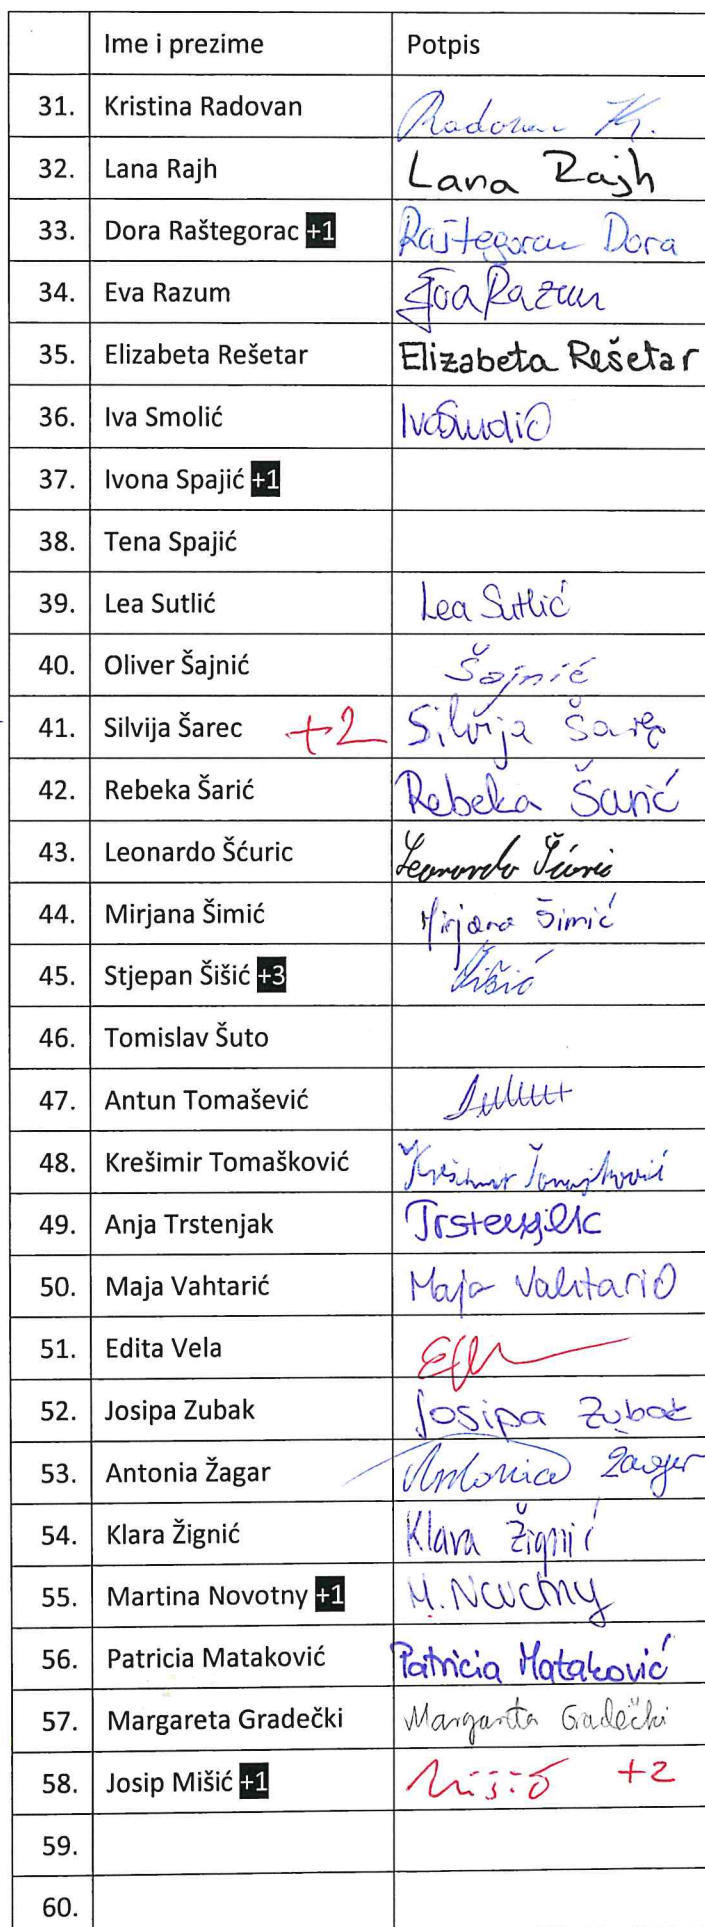 Ime i prezime Potpis
31. Kristina Radovan Radovan K.
32. Lana Rajh Lana Rajh
33. Dora Raštegorac +1 Raštegorac Dora
34. Eva Razum Eva Razum
35. Elizabeta Rešetar Elizabeta Rešetar
36. Iva Smolić Iva Smolić
37. Ivona Spajić +1
38. Tena Spajić
39. Lea Sutlić Lea Sutlić
40. Oliver Šajnić Šajnić
41. Silvija Šarec +2 Silvija Šarec
42. Rebeka Šarić Rebeka Šarić
43. Leonardo Šćuric Leonardo Šćuric
44. Mirjana Šimić Mirjana Šimić
45. Stjepan Šišić +3 Šišić
46. Tomislav Šuto
47. Antun Tomašević
48. Krešimir Tomašković Krešimir Tomašković
49. Anja Trstenjak Trstenjak
50. Maja Vahtarić Maja Vahtarić
51. Edita Vela
52. Josipa Zubak Josipa Zubak
53. Antonia Žagar Antonia Žagar
54. Klara Žignić Klara Žignić
55. Martina Novotny +1 M. Novotny
56. Patricia Mataković Patricia Mataković
57. Margareta Gradečki Margareta Gradečki
58. Josip Mišić +1 Mišić +2
59.
60.